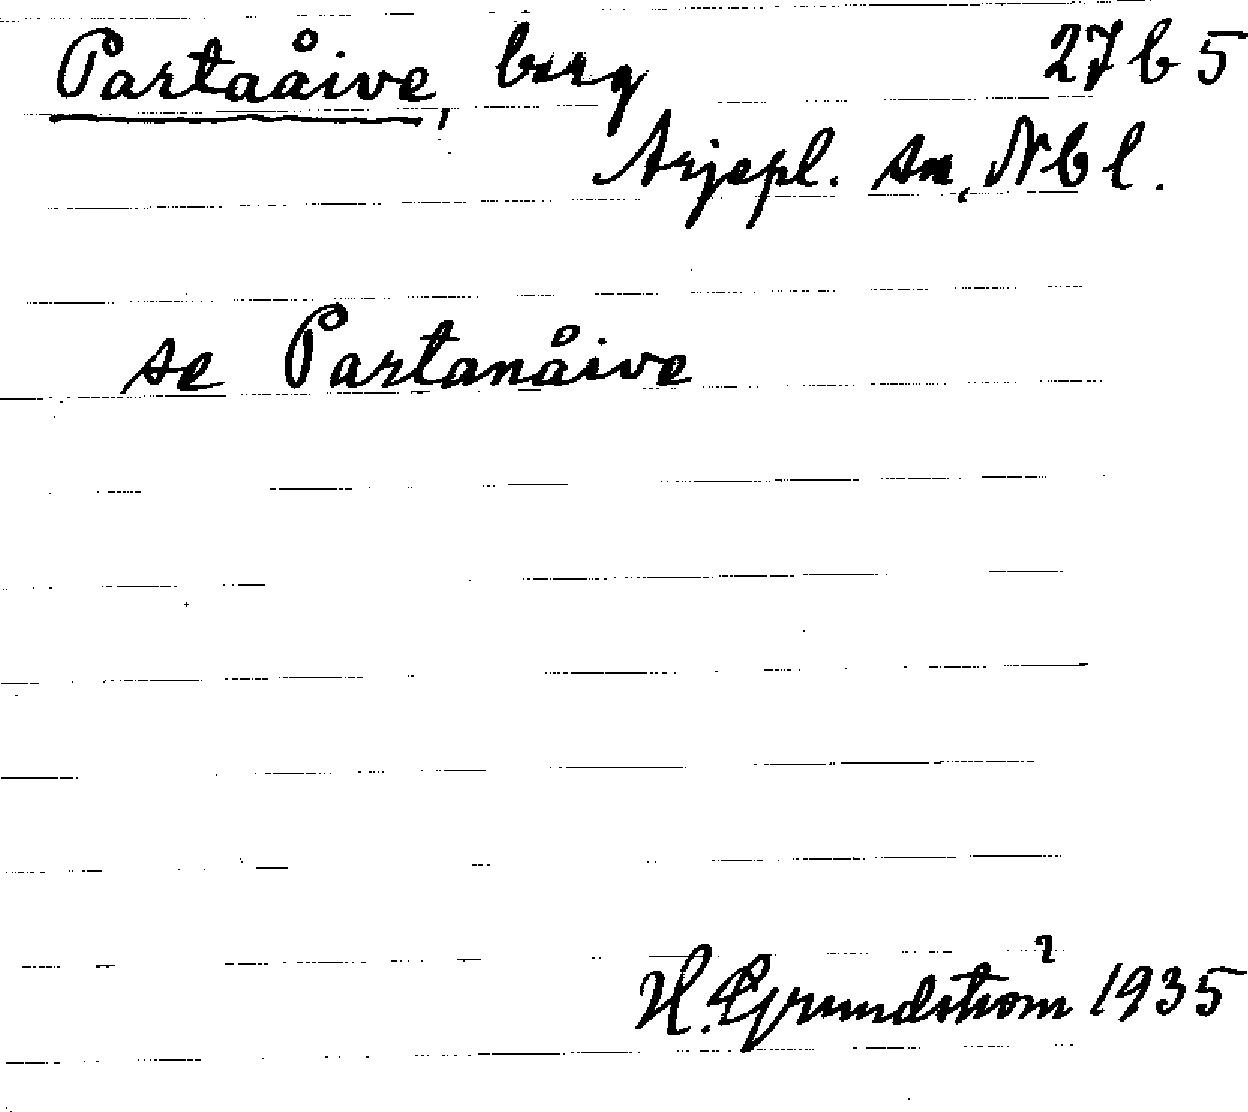 Partaåive, berg 27b5
Arjepl. sn, Nbl.
se Partanåive
H. Grundström 1935